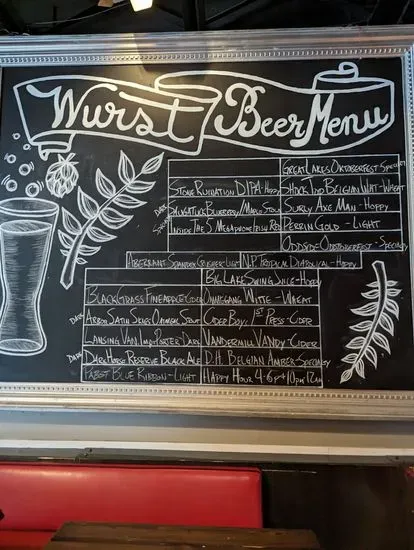 Wurst Beer Menu
Great Lakes Oktoberfest - Specialty
Stone Ruination DIPA - Hoppy
Short's Ind Belgian Wht - Wheat
Dark Blueberry/Maple Stout
Surly Axe Man - Hoppy
Perrin Gold - Light
Oddside Oktoberfest - Specialty
Aberrant Spandex Light
N.P. Tropical Diabolical - Hoppy
Big Lake Swing Juice - Hoppy
BlackGrass Pineapple Cider
Ommegang Witte - Wheat
Dark Arbor Satin Oatmeal Stout
Cider Boys 1st Press - Cider
Lansing Van. Imp. Porter Dark
Vandermill Vandy - Cider
Dark DarkHorse Reserve Black Ale
D.H. Belgian Amber Specialty
Pabst Blue Ribbon - Light
Happy Hour 4-6p + 10pm-12am